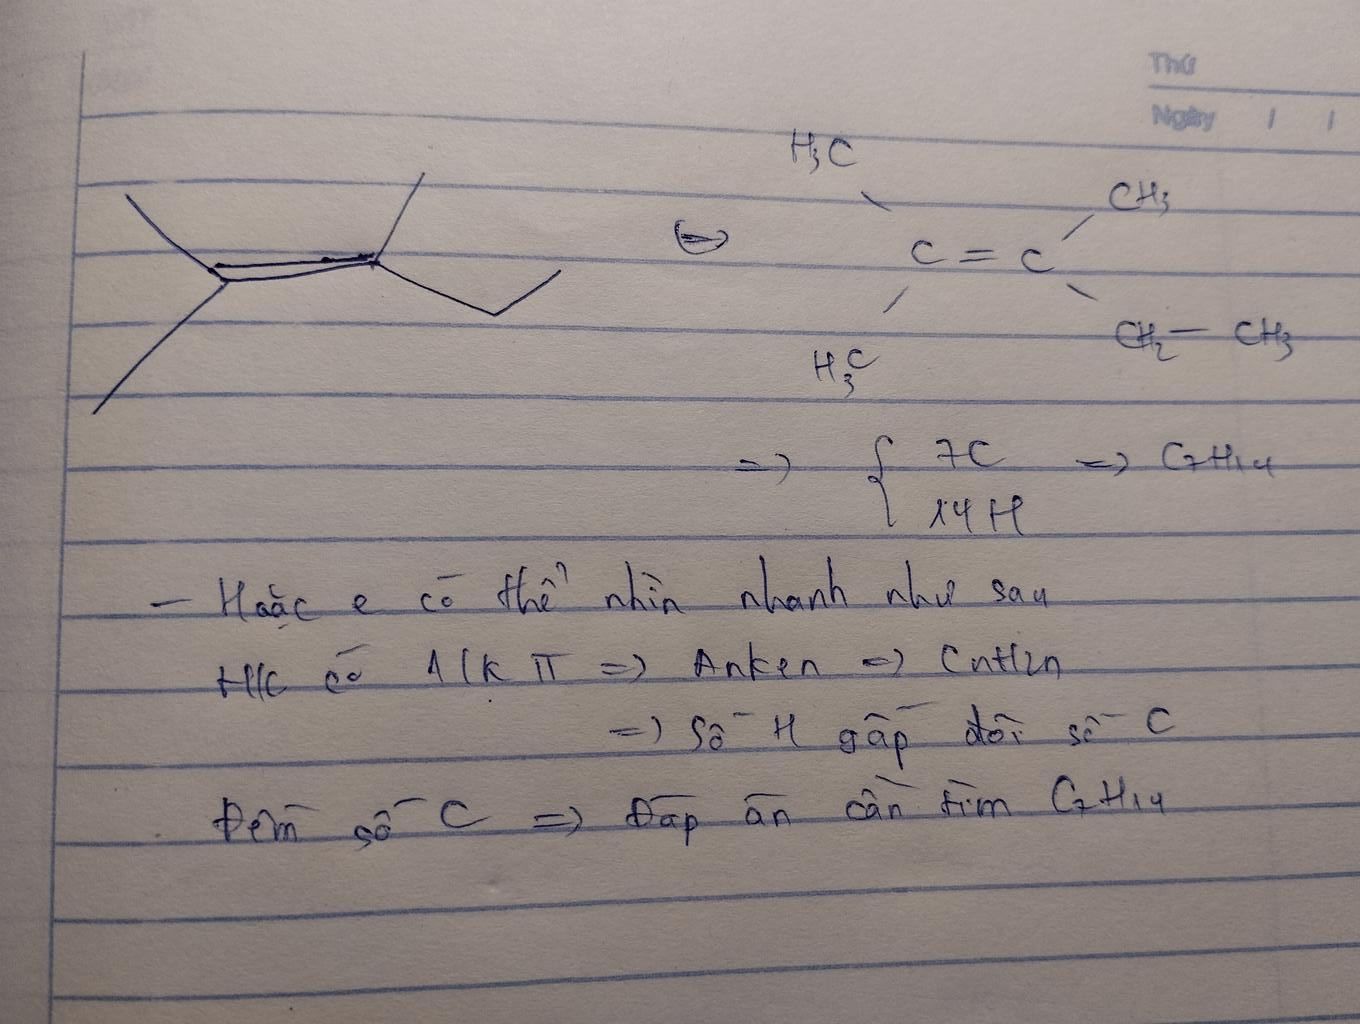 Thứ
Ngày / /
H₃C
CH₃
C = C
H₃C
CH₂ — CH₃
=> { 7C => C₇H₁₄
14H
- Hoặc e có thể nhìn nhanh như sau
HC có 1 lk π => Anken => CnH2n
=> Số H gấp đôi số C
Đếm số C => Đáp án cần tìm C₇H₁₄